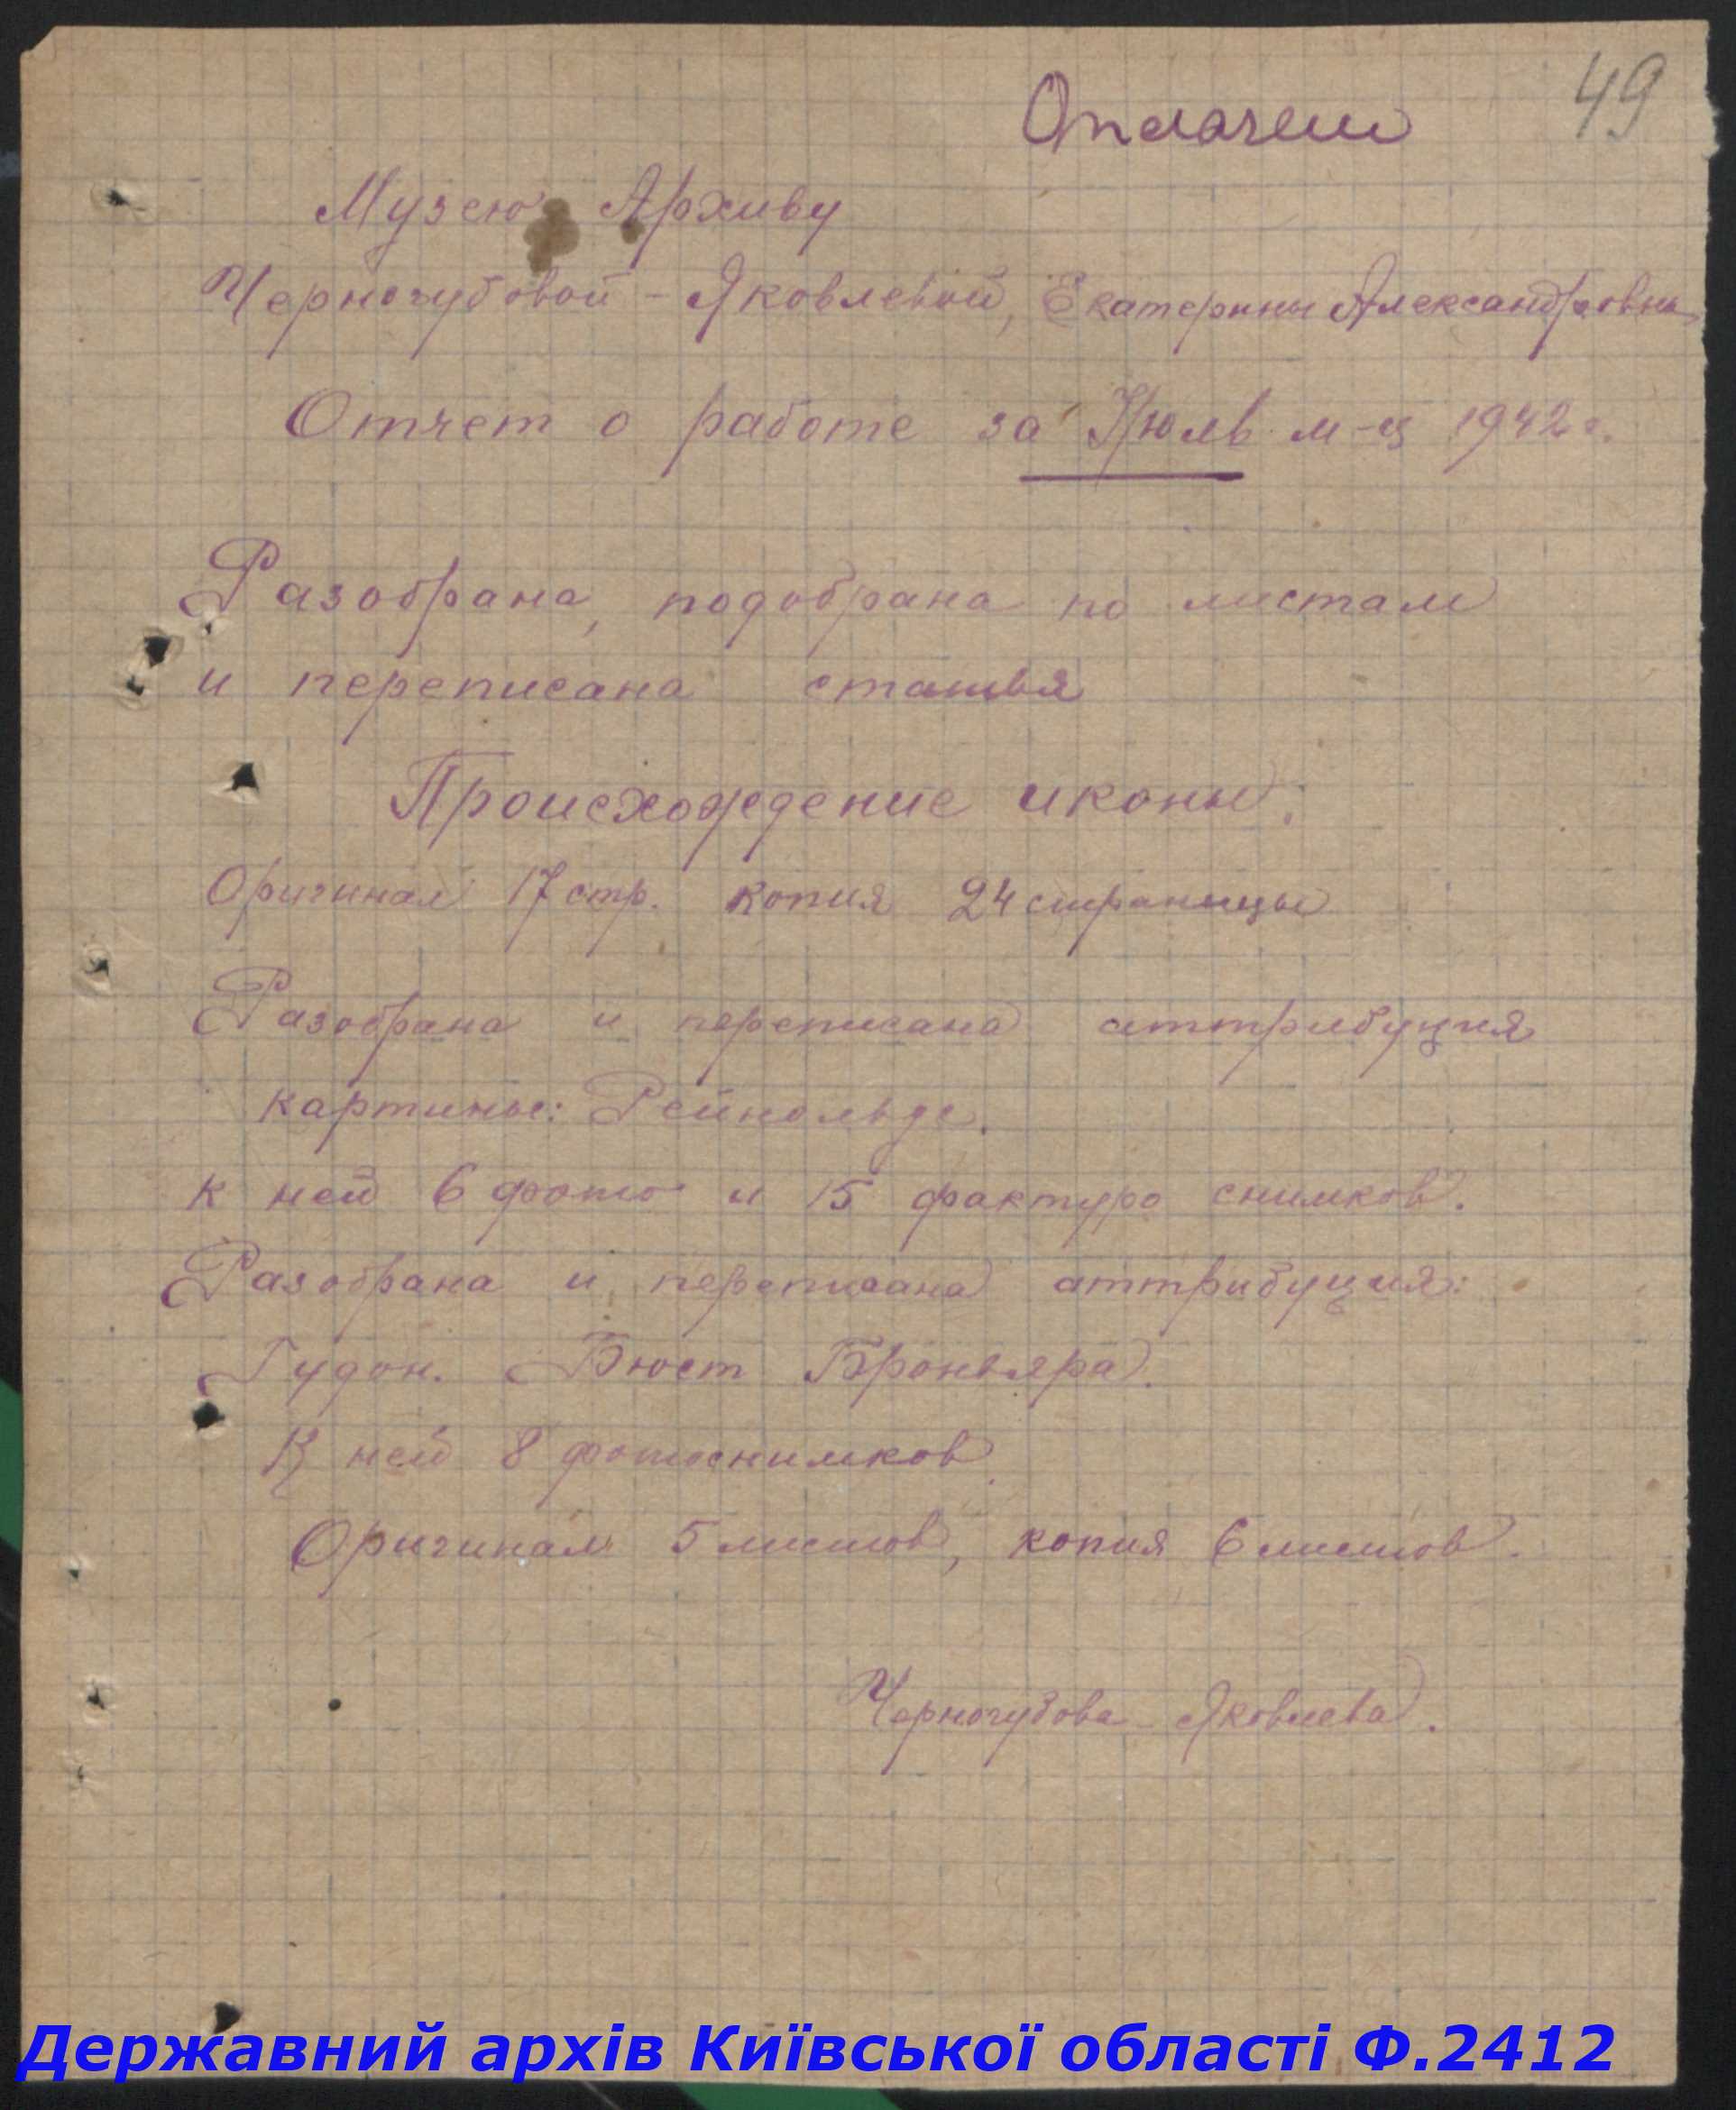 49
Оплачен
Музею Архиву
Черногубовой - Яковлевой, Екатерины Александровны
Отчет о работе за Июль м-ц 1942 г.
Разобрана, подобрана по листам
и переписана статья
Происхождение иконы.
Оригинал 17 стр. копия 24 страницы
Разобрана и переписана аттрибуция
картины: Рейнольдс.
к ней 6 фото и 15 фактуро снимков.
Разобрана и переписана аттрибуция:
Гудон. Бюст Броньяра.
К ней 8 фотоснимков.
Оригинал 5 листов, копия 6 листов.
Черногубова - Яковлева.
Державний архів Київської області Ф.2412